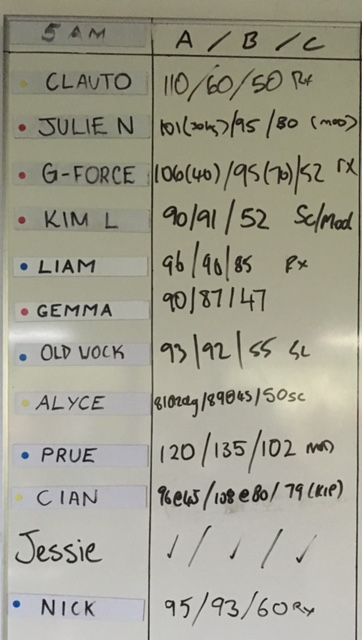 5 AM A / B / C
CLAUTO 110/60/50 Rx
JULIE N 101(20kg)/95/80 (mod)
G-FORCE 106(40)/95(70)/52 RX
KIM L 90/91/52 Sc/Mod
LIAM 96/90/85 Rx
GEMMA 90/87/47
OLD VOCK 93/92/55 SC
ALYCE /50sc
PRUE 120/135/102 MOD
CIAN 96@45/108@80/79 (KIP)
Jessie ✓/✓/✓
NICK 95/93/60 Rx